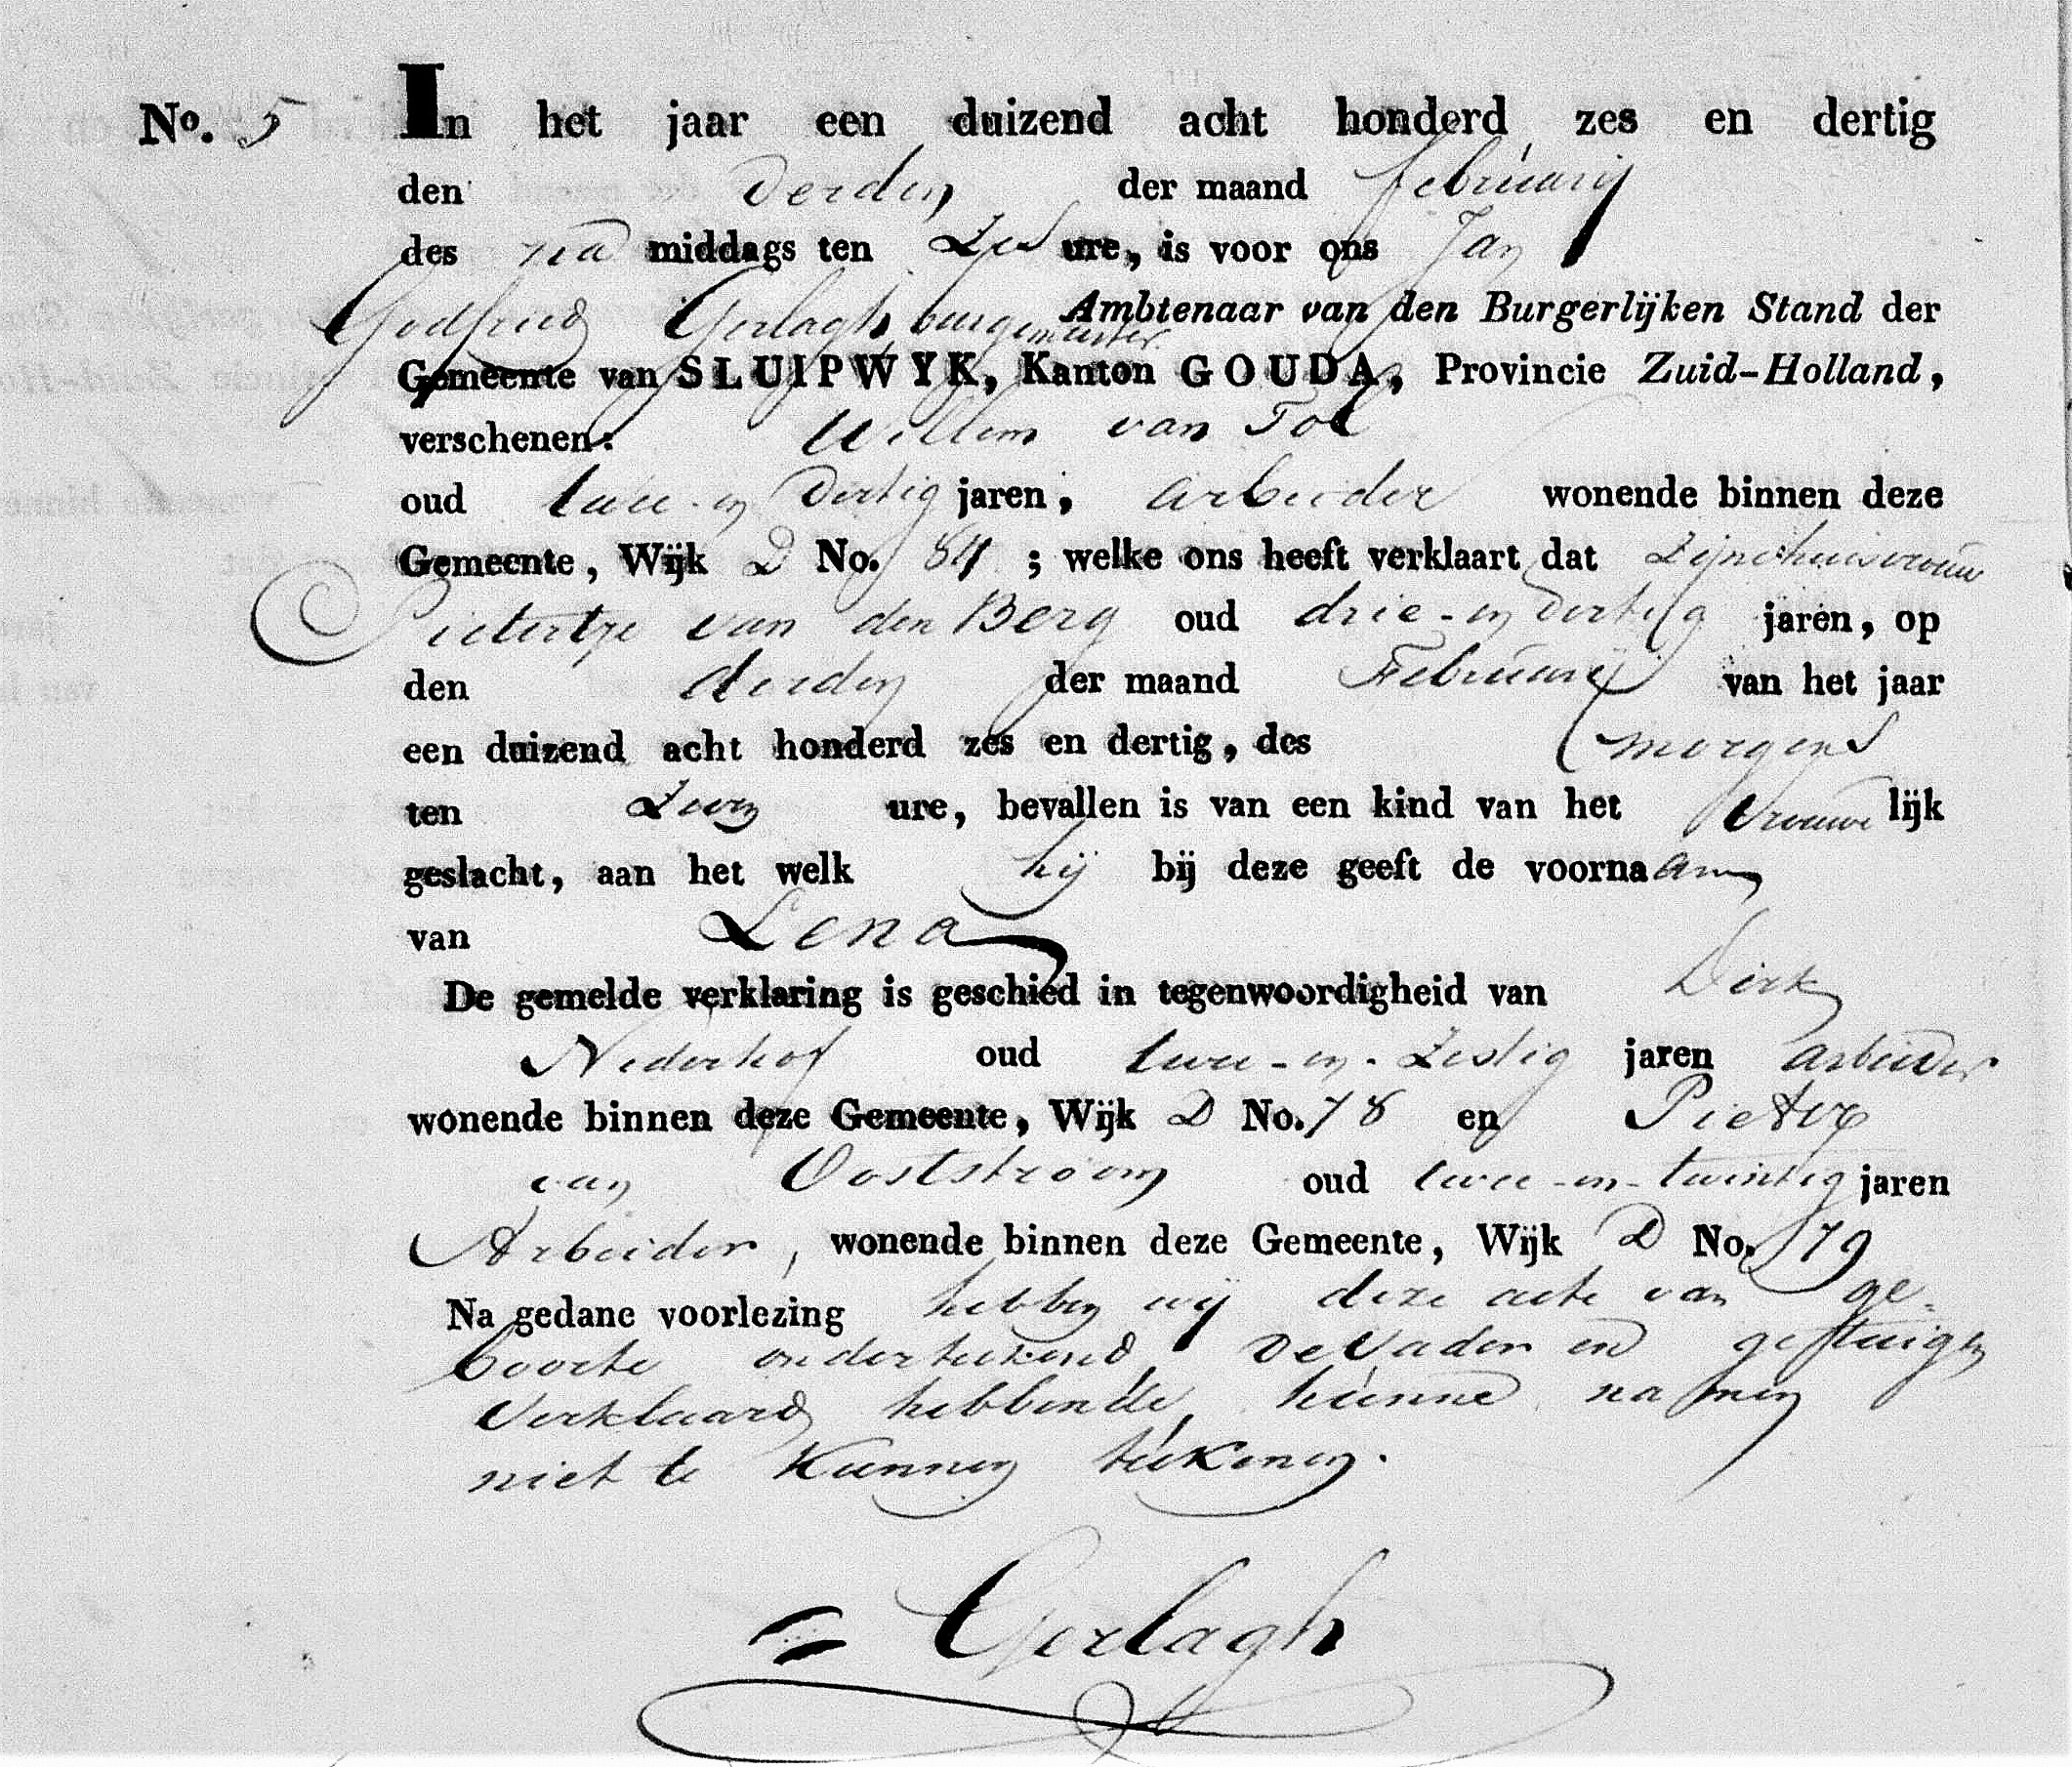 No. 5 In het jaar een duizend acht honderd zes en dertig
den derden der maand februarij
des na middags ten Zes ure, is voor ons Jan
Godfried Gerlagh burgemeester Ambtenaar van den Burgerlijken Stand der
Gemeente van SLUIPWYK, Kanton GOUDA, Provincie Zuid-Holland,
verschenen: Willem van Tol
oud twee-en dertig jaren, arbeider wonende binnen deze
Gemeente, Wijk D No. 84 ; welke ons heeft verklaart dat Zijne huisvrouw
Pietertje van den Berg oud drie-en dertig jaren, op
den derden der maand Februarij van het jaar
een duizend acht honderd zes en dertig, des morgens
ten ure, bevallen is van een kind van het Vrouwe lijk
geslacht, aan het welk hij bij deze geeft de voornaam
van Lena
De gemelde verklaring is geschied in tegenwoordigheid van Dirk
Nederhof oud twee-en-Zestig jaren arbeider
wonende binnen deze Gemeente, Wijk D No. 78 en Pieter
van Oostroom oud twee-en-twintig jaren
Arbeider, wonende binnen deze Gemeente, Wijk D No. 79
Na gedane voorlezing hebben wij deze acte van ge-
boorte onderteekend, De Vader en getuigen
Verklaard hebbende, hunne namen
niet te Kunnen teekenen.
Gerlagh